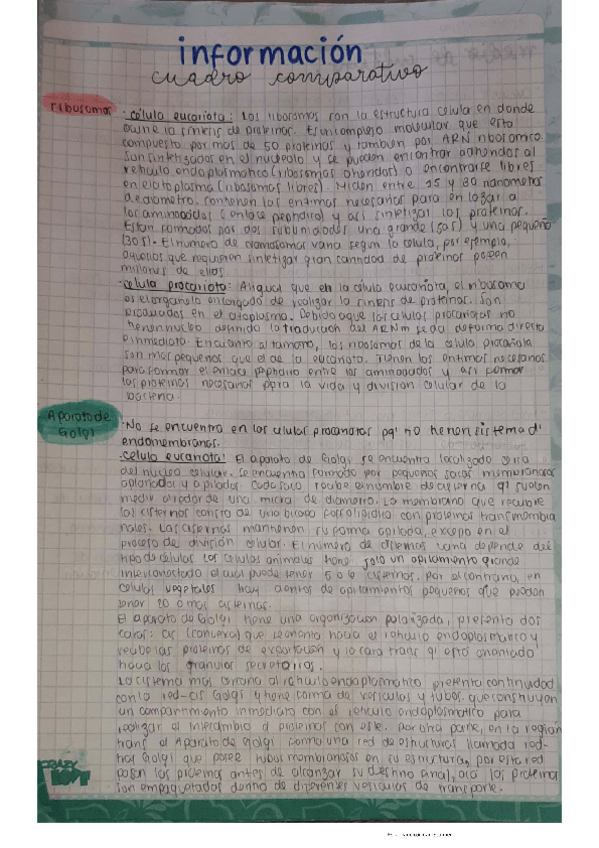 información
cuadro comparativo
ribosomas
·célula eucariota: Los ribosomas son la estructura celula en donde
ocurre la sintesis de proteinas. Es un complejo molecular que esta
compuesto por mas de 50 proteinas y tambien por ARN ribosomico.
Son sintetizados en el nucleolo y se pueden encontrar adheridos al
reticulo endoplasmatico (ribosomas adheridos) o encontrarse libres
en el citoplasma (ribosomas libres). Miden entre 15 y 30 nanometros
de diametro. contienen las enzimas necesarias para enlazar a
los aminoacidos (enlace peptidico) y asi sintetizar las proteinas.
Estan formados por dos subunidades una grande (50s) y una pequeño
(30s). El numero de varia segun la celula, por ejemplo,
aquellas que requieren sintetizar gran cantidad de proteinas poseen
millones de ellos.
·celula procariota: Al igual que en la célula eucariota, el ribosoma
es el organelo encargado de realizar la sintesis de proteinas. Son
producidos en el citoplasma. Debido a que las celulas procariotas no
tienen nucleo definido la traduccion del ARNm se da de forma directa
e inmediata. En cuanto al tamaño, los ribosomas de la célula procariota
son mas pequeños que el de la eucariota. Tienen las enzimas necesarias
para formar el enlace peptidico entre los aminoacidos y asi formar
las proteinas necesarias para la vida y division celular de la
bacteria.
Aparato de
Golgi
·No se encuentra en las celulas procariotas pq' no tienen sistema d'
endomembranas.
·celula eucariota: El aparato de Golgi se encuentra localizado cerca
del nucleo celular. Se encuentra formado por pequeños sacos membranosos
aplanados y apilados. Cada saco recibe el nombre de cisterna q' suelen
medir alrededor de una micra de diametro. La membrana que recubre
las cisternas consta de una bicapa fosfolipidica con proteinas transmembra
nales. Las cisternas mantienen su forma apilada, excepto en el
proceso de división celular. El número de cisternas varia depende del
tipo de celulas. Las celulas animales tiene solo un apilamiento grande
interconectado el cual puede tener 5 o 6 cisternas. Por el contrario, en
celulas vegetales hay cientos de apilamientos pequeños que puedan
tener 20 o mas cisternas.
El aparato de Golgi tiene una organizacion polarizada, presenta dos
caras: cis (convexa) que se orienta hacia el reticulo endoplasmatico y
recibe las proteinas de exportación y la cara trans q' esta orientada
hacia los granulos secretorios.
La cisterna mas cercana al reticulo endoplasmatico presenta continuidad
con la red-cis Golgi y tiene forma de vesiculas y tubos, que construyen
un compartimiento inmediato con el reticulo endoplasmatico para
realizar el intercambio d' proteinas con este. Por otra parte, en la región
trans el Aparato de Golgi forma una red de estructuras llamada red-
tras Golgi que posee tubos membranosos en su estructura, por esta red
pasan las proteinas antes de alcanzar su destino final, aca las proteina
son empaquetadas dentro de diferentes vesiculas de transporte.
CRAZY